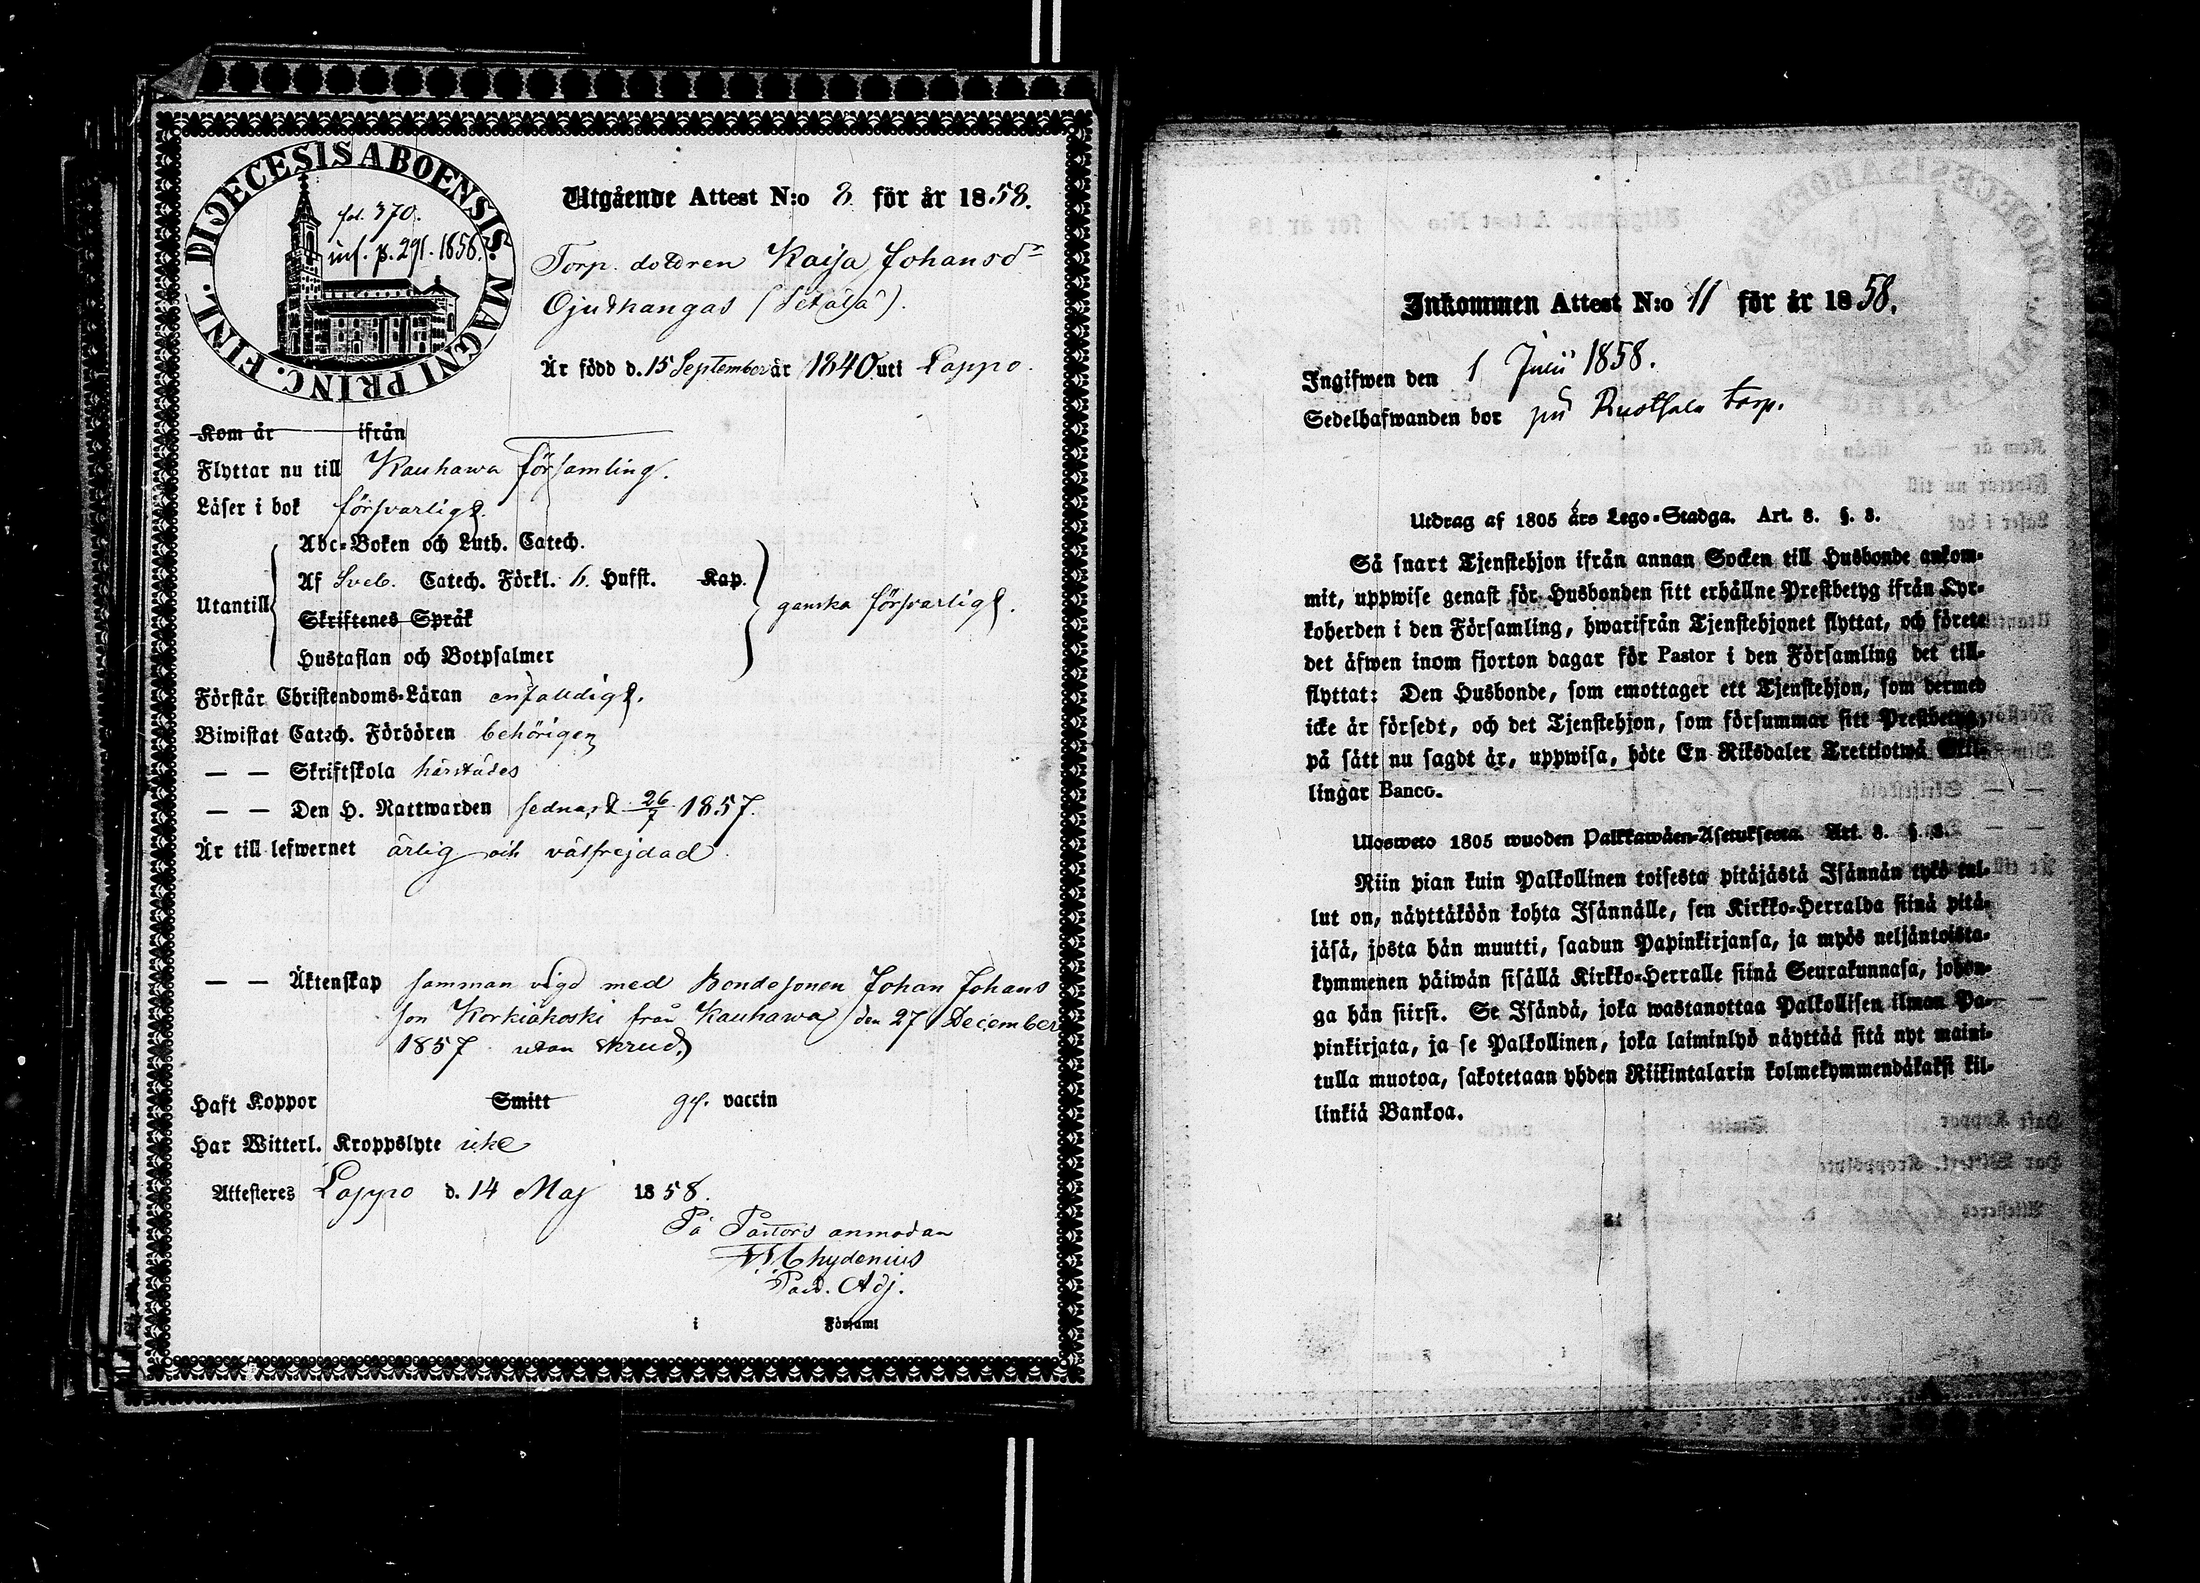 DIŒCESIS ABOENSIS. MAGNI PRINC. FINL.
fol. 370.
inf. p. 291. 1858.
Utgående Attest N:o 8 för år 1858.
Torp. dottren Kaisa Johansdr
Ojutkangas (Setälä).
Är född d. 15 September år 1840 uti Lappo.
Kom år ifrån
Flyttar nu till Kauhawa församling.
Läser i bok försvarligt.
Utantill
Abc-Boken och Luth. Catech.
Af Sveb. Catech. Förkl. 6. Hufst. Kap.
Skriftenes Språk
Hustaflan och Botpsalmer
ganska försvarligt.
Förstår Christendoms-Läran enfaldigt.
Biwistat Catech. Förhören behörigen
— — Skriftskola härstädes
— — Den H. Nattwarden sednast 26/7 1857.
Är till lefwernet ärlig och välfrejdad.
— — Äktenskap samman vigd med Bondesonen Johan Johans
son Korkiakoski från Kauhawa den 27 December
1857 utan skrud.
Haft Koppor Smitt gf. vaccin
Har Witterl. Kroppslyte icke
Attesteres Lappo d. 14 Maj 1858.
På Pastors anmodan
Chydenius
Past. Adj.
i Församl
Inkommen Attest N:o 11 för år 1858.
Ingifwen den 1 Juli 1858.
Sedelhafwanden bor på Ruotsala torp.
Utdrag af 1805 års Lego-Stadga. Art. 8. §. 8.
Så snart Tjenstehjon ifrån annan Socken till Husbonde ankom-
mit, uppwise genast för Husbonden sitt erhållne Prestbetyg ifrån Kyr-
koherden i den Församling, hwarifrån Tjenstehjonet flyttat, och förete
det äfwen inom fjorton dagar för Pastor i den Församling det till-
flyttat: Den Husbonde, som emottager ett Tjenstehjon, som dermed
icke är försedt, och det Tjenstehjon, som försummar sitt Prestbetyg,
på sätt nu sagdt är, uppwisa, böte En Riksdaler Trettiotwå Skil-
lingar Banco.
Ulosweto 1805 wuoden Palkkawäen-Asetuksesta. Art. 8. §. 8.
Niin pian kuin Palkollinen toisesta pitäjästä Isännän tykö tul-
lut on, näyttäköön kohta Isännälle, sen Kirkko-Herralda siinä pitä-
jäsä, josta hän muutti, saadun Papinkirjansa, ja myös neljäntoista-
kymmenen päiwän sisällä Kirkko-Herralle siinä Seurakunnasa, johon-
ga hän siirsi. Se Isändä, joka wastanottaa Palkollisen ilman Pa-
pinkirjata, ja se Palkollinen, joka laiminlyö näyttää sitä nyt maini-
tulla muotoa, sakotetaan yhden Riikintalarin kolmekymmendäkaksi kil-
linkiä Bankoa.